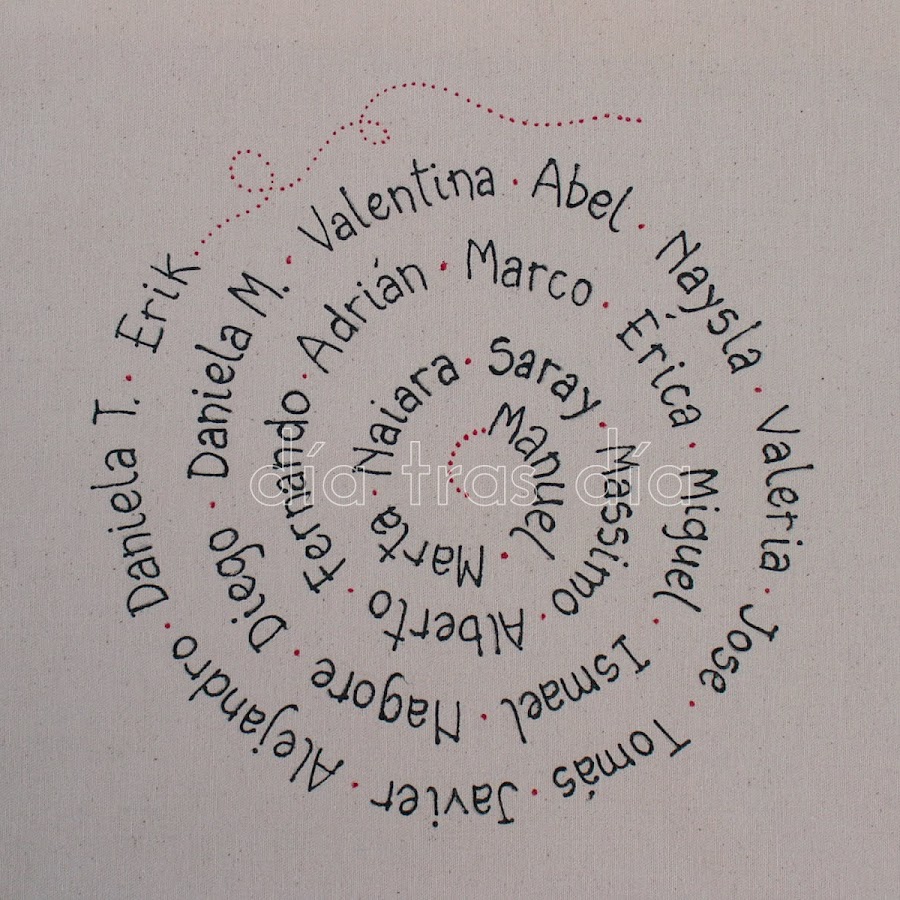 Manuel · Marta · Naiara · Saray · Massimo · Alberto · Fernando · Adrián · Marco · Érica · Miguel · Ismael · Nagore · Diego · Daniela M. · Valentina · Abel · Naysla · Valeria · Jose · Tomás · Javier · Alejandro · Daniela T. · Erik
día tras día